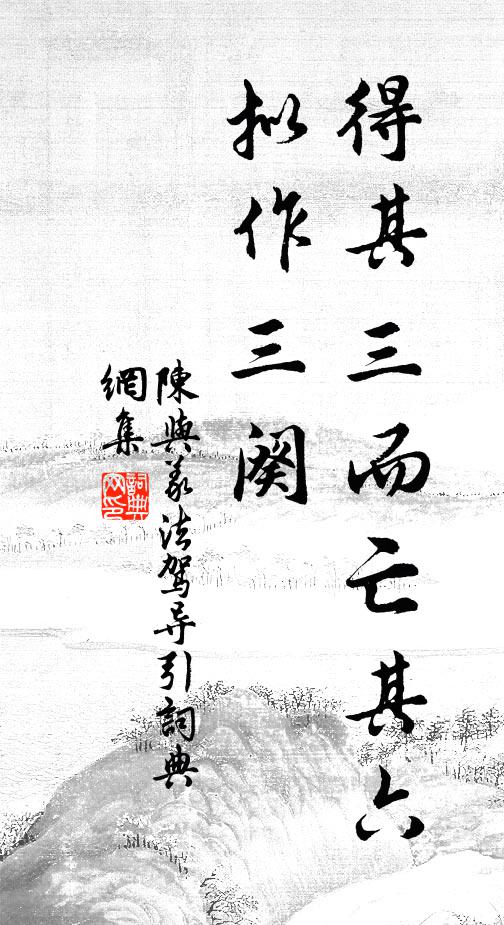 得其三而亡其六
拟作三阕
陳與義法驾导引詞典
網集
詞典
网印